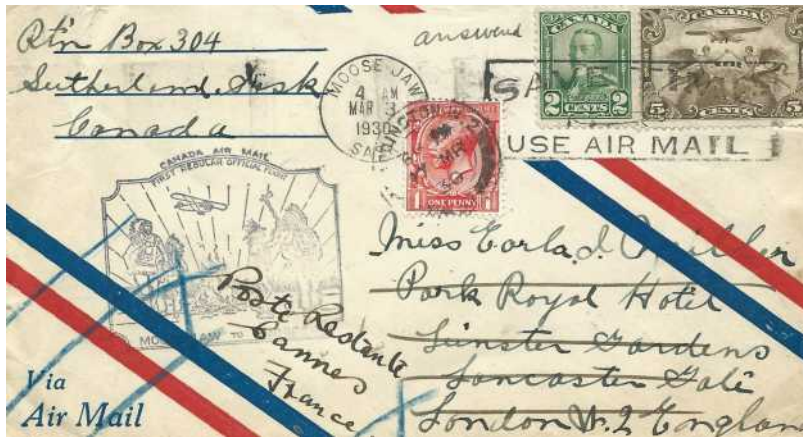 Rt'n Box 304
Sutherland, Sask
Canada
answered
MOOSE JAW
4 AM
MAR 3
1930
SASK
CANADA
2 CENTS 2
CANADA
5 CENTS 5
SAVE TIME
USE AIR MAIL
PADDINGTON W.2
MR
30
1 ONE PENNY 1
CANADA AIR MAIL
FIRST REGULAR OFFICIAL FLIGHT
MOOSE JAW TO
Miss Earla I.
Park Royal Hotel
Leinster Gardens
Lancaster Gate
London W.2 England
Poste Restante
Cannes
France
Via
Air Mail